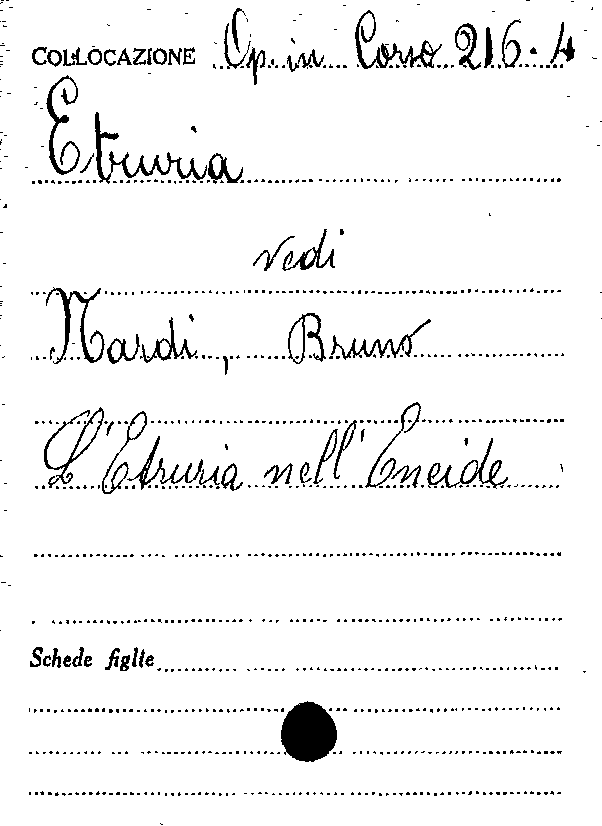 COLLOCAZIONE Op. in Corso 216.4
Etruria
vedi
Nardi, Bruno
L'Etruria nell'Eneide
Schede figlie